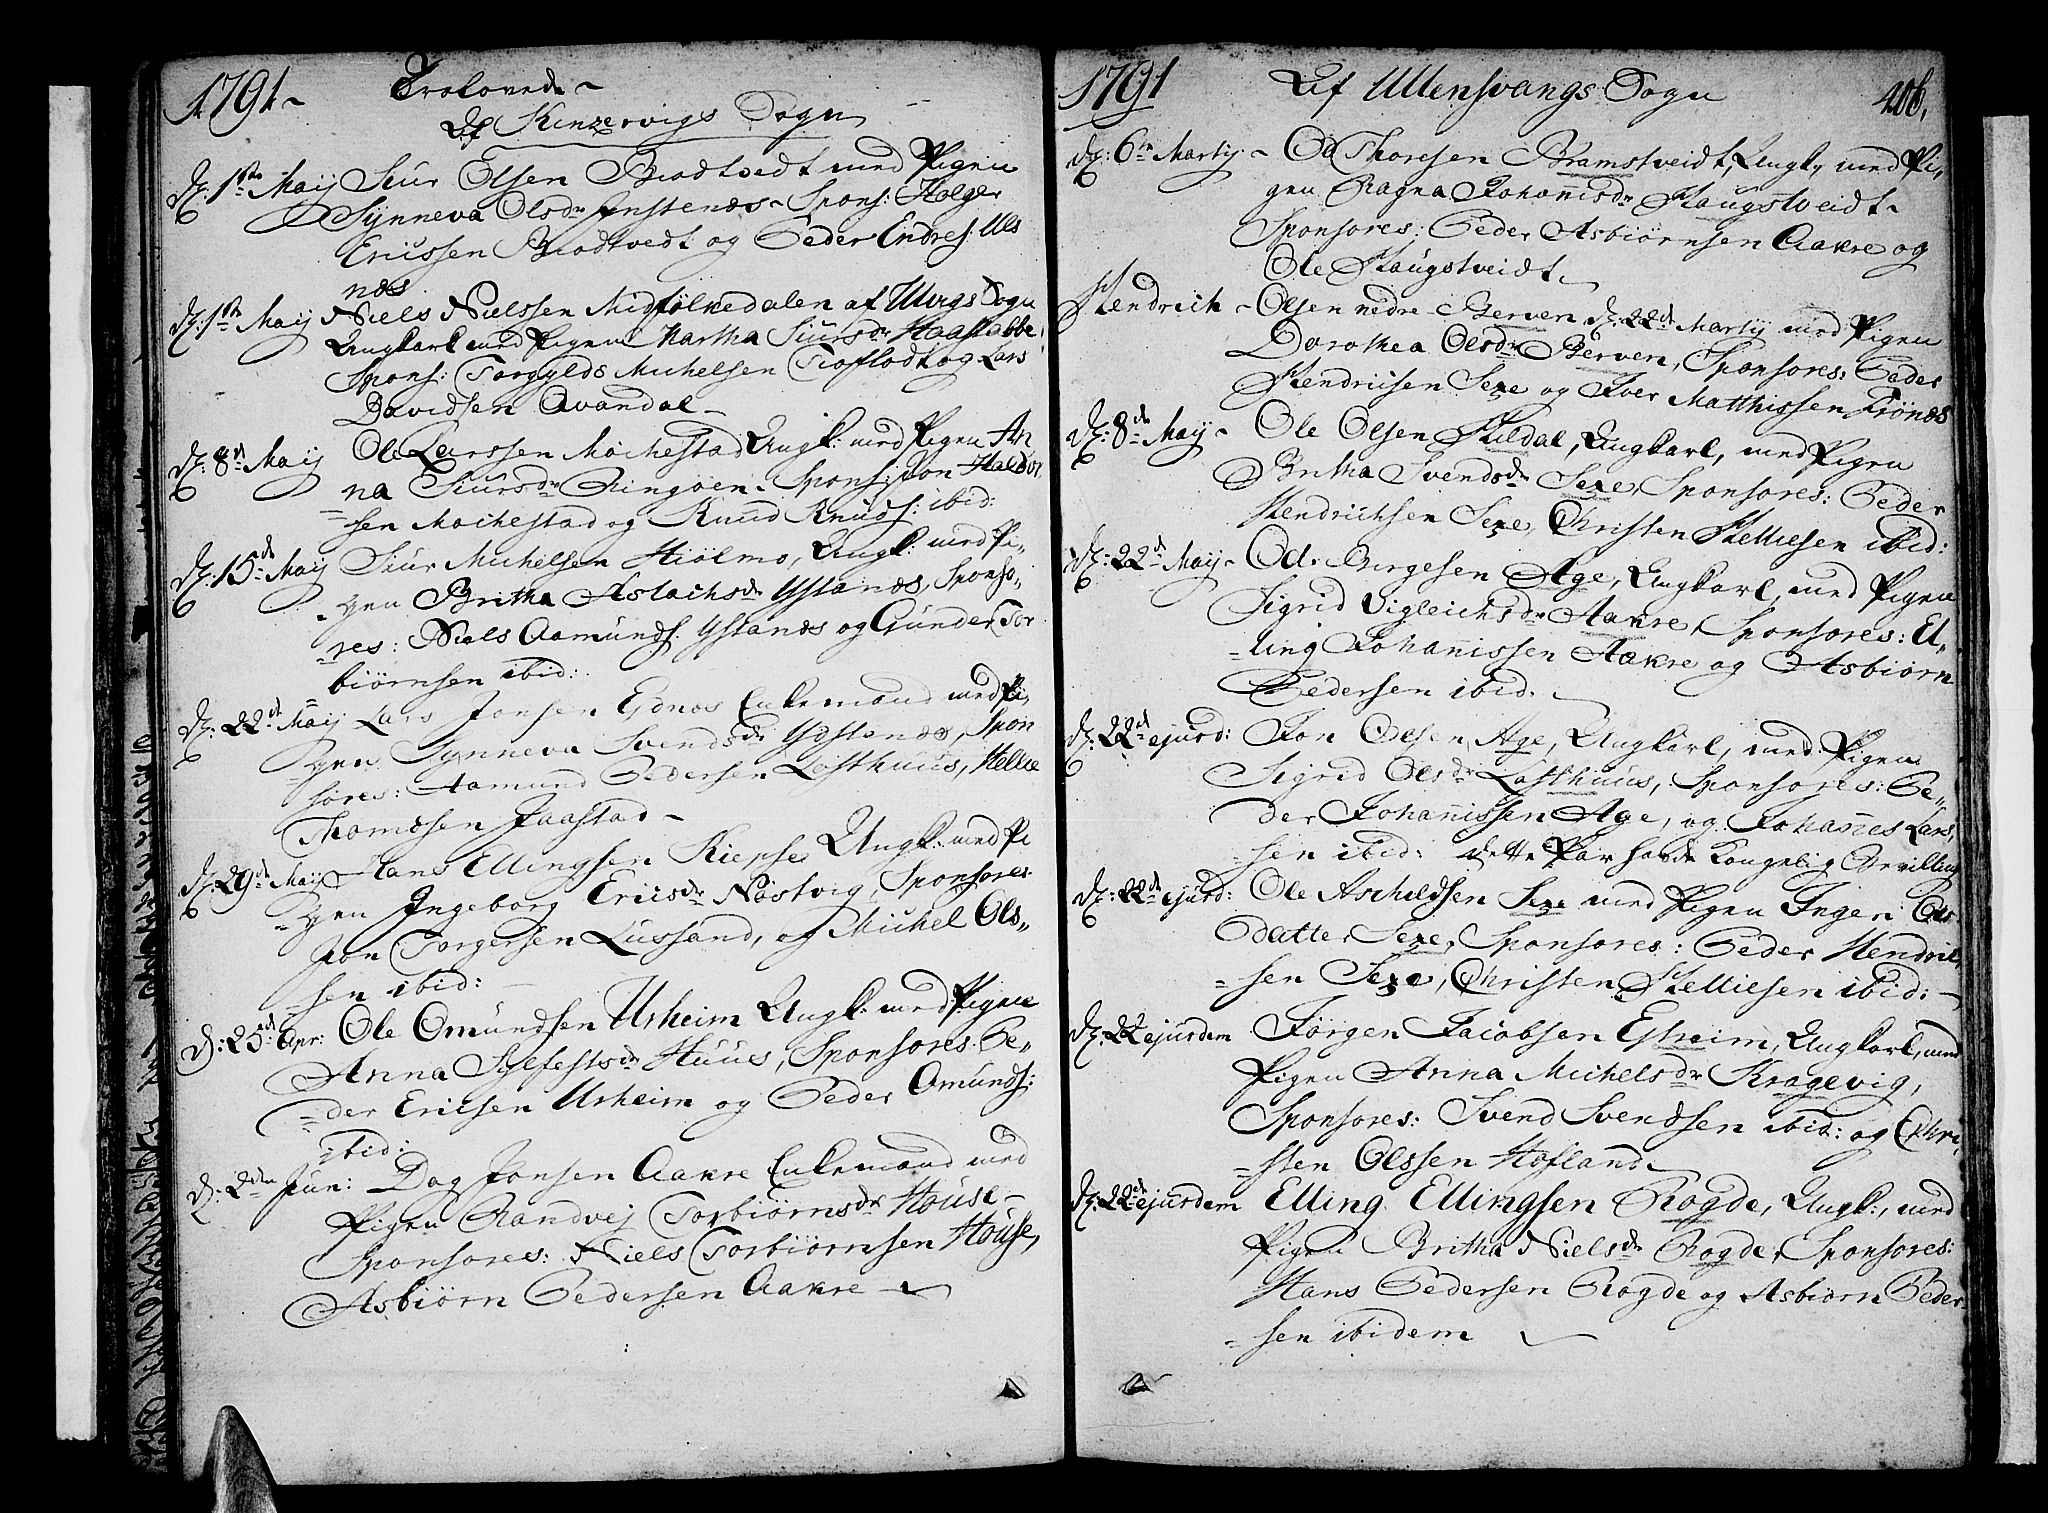 1791 Trolovede
Af Kinzervigs Sogn
D: 1ste Maij Siur Olsen Brodtvedt med Pigen
Synneva Olsdr Spons: Holger
Erissen Brodtvedt og Peder Endres: Uls
næs
D: 1ste Maij Niels Nielssen Midfolkedalen af Uvigs Sogn
Ungkarl med Pigen Martha Siursdr Haastabbe,
Spons: Torgylds Michelsen Tioflodt og Lars
Davidsen Qvandal
D: 8de Maij Ole Larssen Mochestad Ungk: med Pigen An
na Siursdr Ringøen Spons: Jon Haldor
sen Mochestad og Knud Knuds: ibid:
D: 15de Maij Siur Michelsen Hiølmo, Ungk: med Pi,
gen Britha Aslachsdr Ystanæs, Sponso,,
res: Niels Aamunds: Ystanæs og Gunder Tor
biørnsen ibid:
D: 22de Maij Lars Jonsen Ednos Enkemand med Pi,
gen Synneva Svendsdr Ystenæs, Spon
sores: Aamund Pedersen Lofthuus, Hellie
Thomæsen Jaastad
D: 29de Maij Hans Ellingsen Kiepse Ungk: med Pi
gen Ingeborg Ericsdr Nøstvig, Sponsores:
Jon Torgersen Lussand, og Michel Ols,,
sen ibid:
D: 25de Apr: Ole Omundsen Urheim Ungk: med Pigen
Anna Sylfestsdr Huus, Sponsores: Pe,,
der Ericsen Urheim og Peder Omunds:
ibid:
D: 2den Jun: Dag Jonsen Aakre Enkemand med
Pigen Randvej Torbiørnsdr House
Sponsores: Niels Torbiørnsen House,
Asbiørn Pedersen Aakre
1791 Af Ullensvangs Sogn 206.
D: 6te Martij Od Thoresen Bramstveidt, Ungk, med Pi,
gen Ragna Johanisdr Haugstveidt
Sponsores: Peder Asbiørnsen Aakre og
Ole Haugstveidt
Hendrich Olsen nedre Berven D: 22de Martij med Pigen
Dorothea Olsdr Berven, Sponsores: Peder
Hendricsen Sexe og Iver Matthissen Trönæs
D: 8de Maij Ole Olsen Sildal, Ungkarl, med Pigen
Britha Svendsdr Sexe, Sponsores: Peder
Hendrichsen Sexe, Christen Helliesen ibid:
D: 22de Maij Od Birgesen Age, Ungkarl, med Pigen
Sigrid Vigleichsdr Aakre, Sponsores: El,,
ling Johanissen Aakre og Asbiørn
Pedersen ibid.
D: 22de ejusd: Jon Odsen Age, Ungkarl, med Pigen
Sigrid Olsdr Lofthuus, Sponsores: Pe,,
der Johanissen Age, og Johanes Lars,
sen ibid: dette Par havde Kongelig Bevilling
D: 22de ejusd: Ole Aschildsen Sexe med Pigen Inger Ols
datter Sexe, Sponsores: Peder Hendric,
sen Sexe, Christen Helliesen ibid:
D: 22 ejusdem Jørgen Jacobsen Esheim, Ungkarl, med
Pigen Anna Michelsdr Kragevig,
Sponsores: Svend Svendsen ibid: og Chri,
sten Olssen Hofland
D: 22de ejusdem Elling Ellingsen Rogde, Ungk:, med
Pigen Britha Nielsdr Rogde, Sponsores:
Hans Pedersen Rogde og Asbiørn Peder
sen ibidem